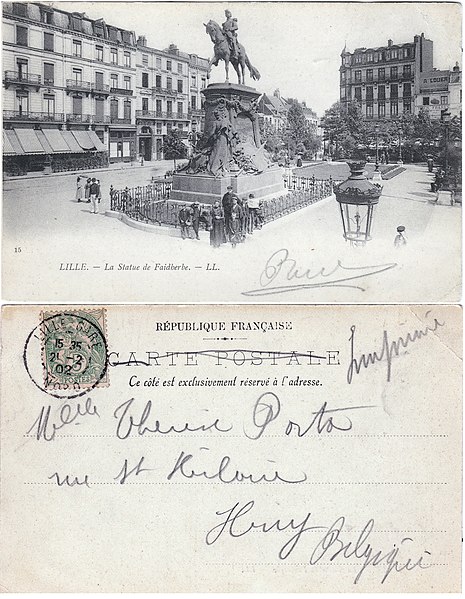 A LOUER
15
LILLE. — La Statue de Faidherbe. — LL.
LILLE-GARE
15-35
02
NORD
POSTES
RÉPUBLIQUE FRANÇAISE
CARTE POSTALE
Ce côté est exclusivement réservé à l'adresse.
Imprimé
Melle
Porta
rue St Hilaire
Huy
Belgique